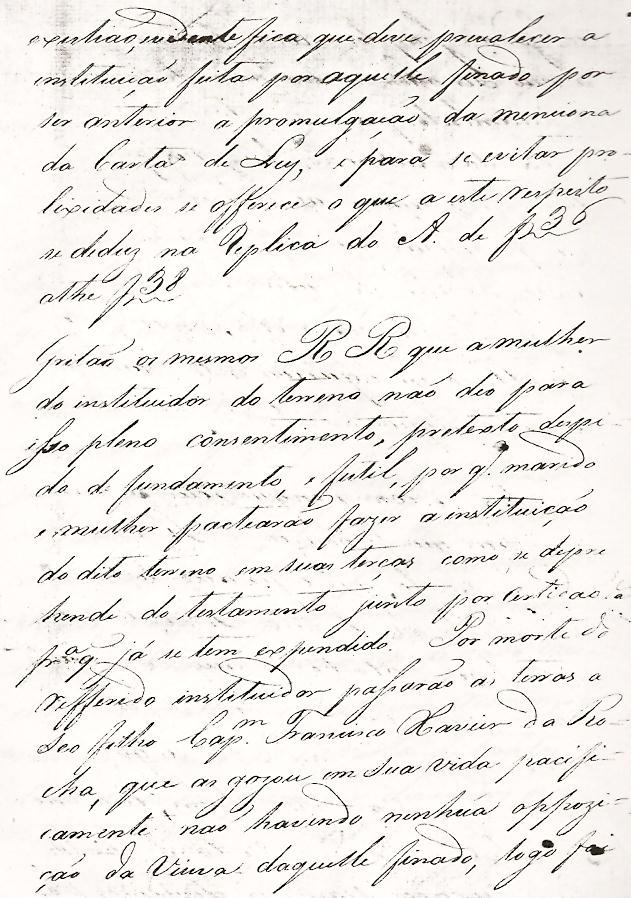 evidente fica que deve prevalecer a
instituição feita por aquelle finado por
ser anterior a promulgação da menciona
da Carta de Ley, e para se evitar pro-
lixidades se offerece o que a este respeito
se deduz na Replica do A. de f 36
athe f 38
Gritão os mesmos R R que a mulher
do instituidor do terreno não deo para
isso pleno consentimento, pretexto despi-
do de fundamento, e futil, por q. marido
e mulher pactearão fazer a instituição
do dito terreno em suas terças como se depre
hende do testamento junto por Certidão a
f q já se tem expendido. Por morte do
refferido instituidor passarão as terras a
seo filho Cap.m Francisco Xavier da Ro-
cha, que as gozou em sua vida pacifi-
camente não havendo nenhúa oppozi-
ção da Viuva daquelle finado, logo foi